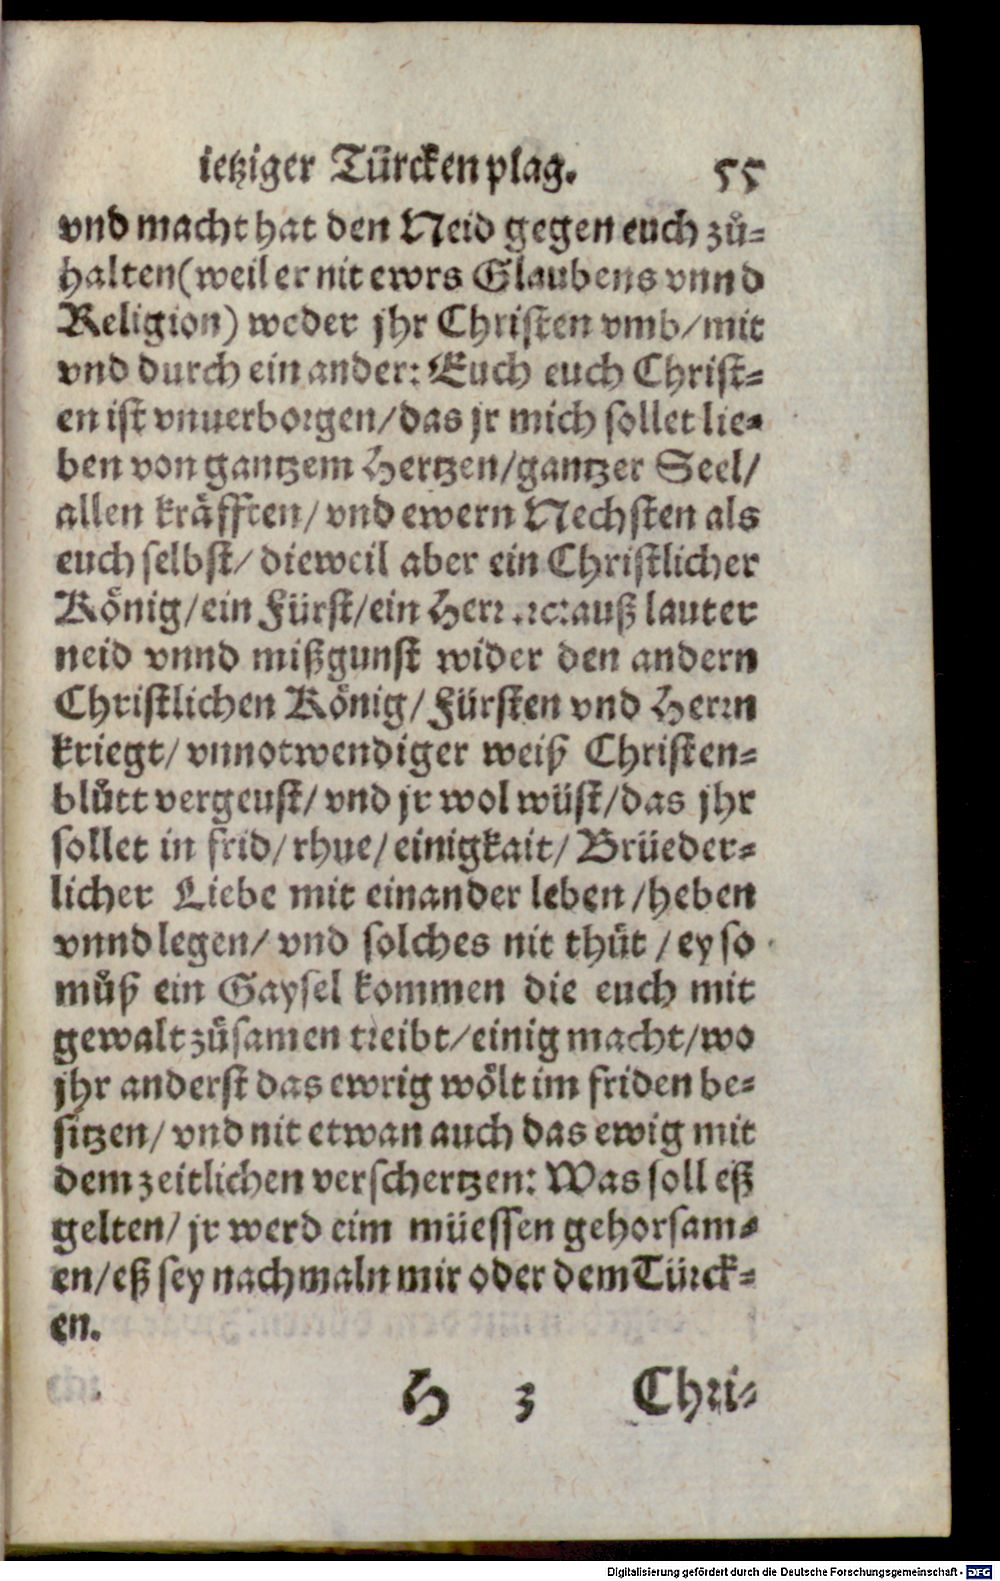 ietziger Türcken plag. 55
vnd macht hat den Neid gegen euch zů=
halten (weil er nit ewrs Glaubens vnnd
Religion) weder jhr Christen vmb/ mit
vnd durch ein ander: Euch euch Christ=
en ist vnuerborgen/ das jr mich sollet lie=
ben von gantzem Hertzen/ gantzer Seel/
allen kräfften/ vnd ewern Nechsten als
euch selbst/ dieweil aber ein Christlicher
König/ ein Fürst/ ein Herr .ꝛc: auß lauter
neid vnnd mißgunst wider den andern
Christlichen König/ Fürsten vnd Herrn
kriegt/ vnnotwendiger weiß Christen=
blůtt vergeust/ vnd jr wol wüst/ das jhr
sollet in frid/ rhue/ einigkait/ Brüeder=
licher Liebe mit einander leben/ heben
vnnd legen/ vnd solches nit thůt/ ey so
můß ein Gaysel kommen die euch mit
gewalt zůsamen treibt/ einig macht/ wo
jhr anderst das ewrig wölt im friden be=
sitzen/ vnd nit etwan auch das ewig mit
dem zeitlichen verschertzen: Was soll eß
gelten/ jr werd eim müessen gehorsam=
en/ eß sey nachmaln mir oder dem Türck=
en.
H 3 Chri=
Digitalisierung gefördert durch die Deutsche Forschungsgemeinschaft - DFG